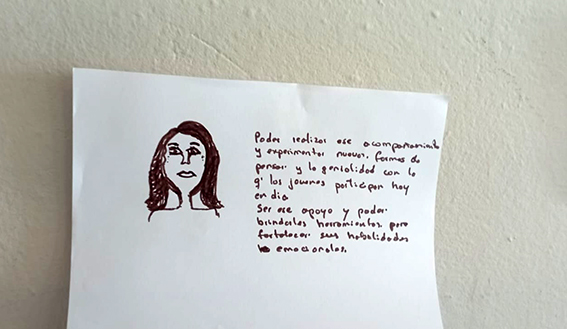 Poder realizar ese acompañamiento
y experimentar nuevas formas de
pensar y la genialidad con la
q' los jovenes participan hoy
en dia
Ser ese apoyo y poder
brindarles herramientas para
fortalecer sus habilidades
emocionales.